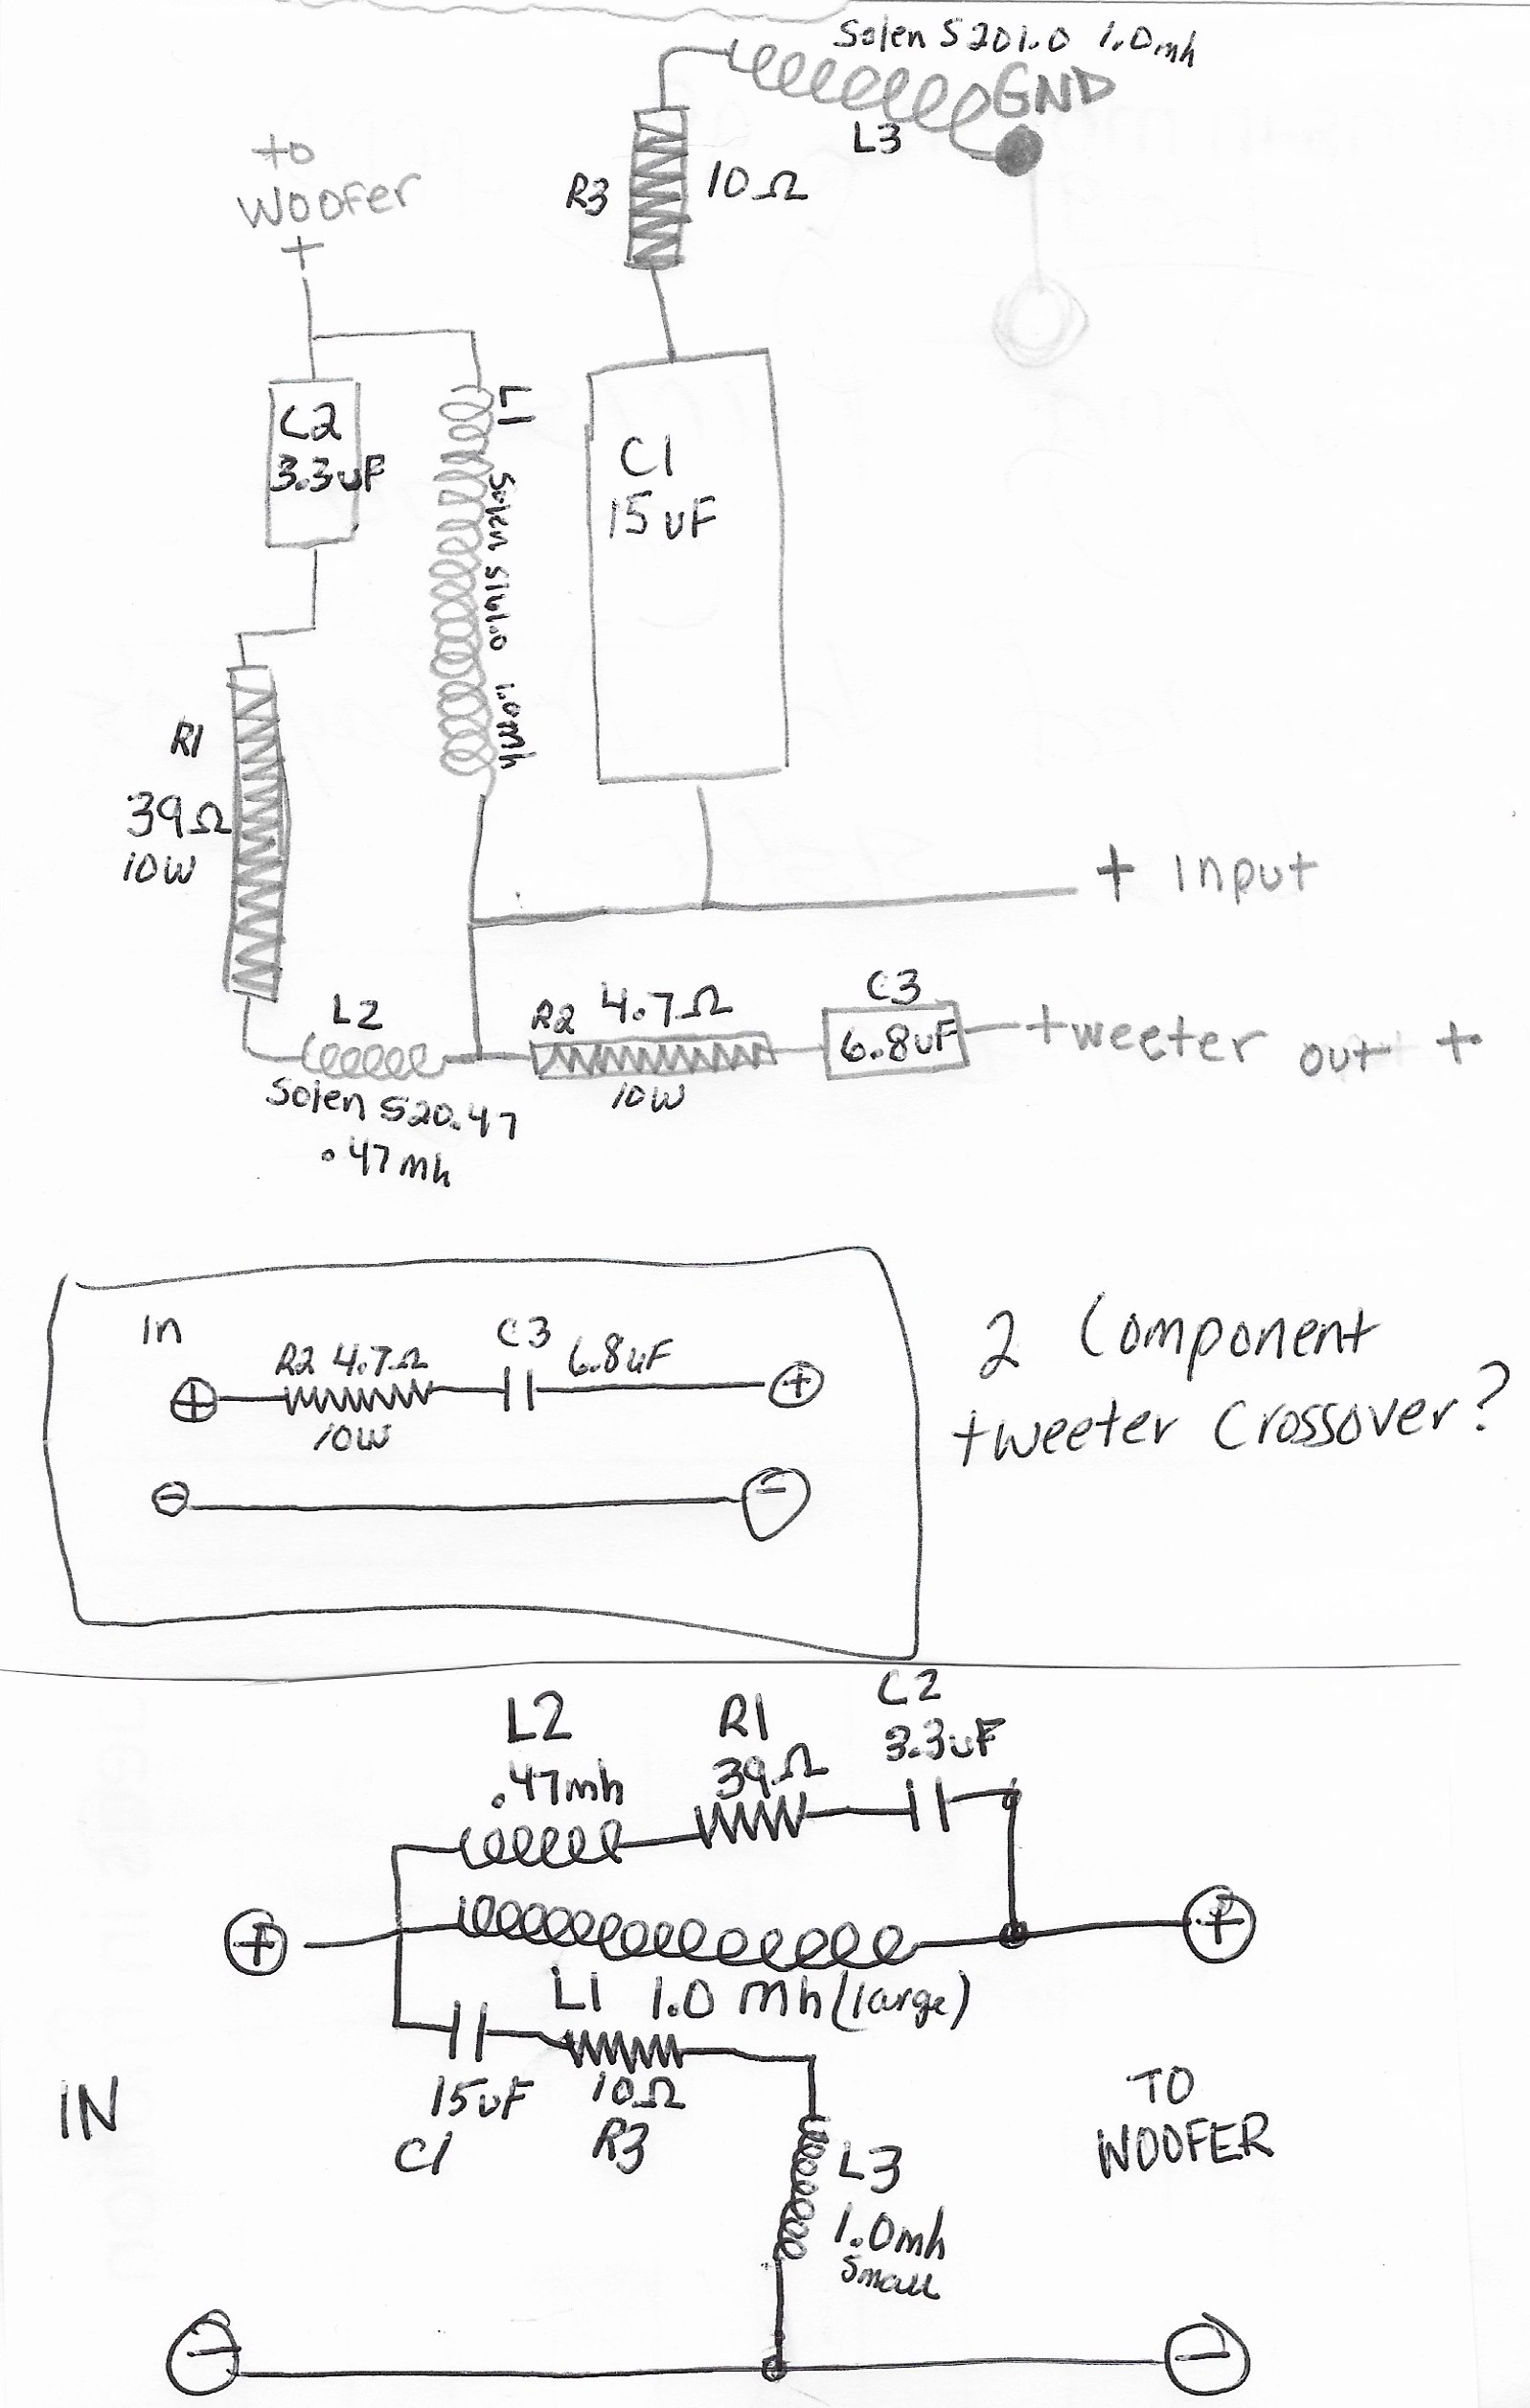 Solen S201.0 1.0mh
GND
L3
R3
10Ω
to
Woofer
+
C2
3.3uF
L1
Solen S161.0 1.0mh
C1
15uF
R1
39Ω
10W
+ Input
L2
Solen S20.47
.47mh
R2 4.7Ω
10W
C3
6.8uF
tweeter out +
In
R2 4.7Ω
10W
C3
6.8uF
+
+
-
-
2 Component
tweeter Crossover?
L2
.47mh
R1
39Ω
C2
3.3uF
+
+
L1 1.0 Mh (large)
15uF
C1
10Ω
R3
IN
L3
1.0mh
Small
TO
WOOFER
-
-